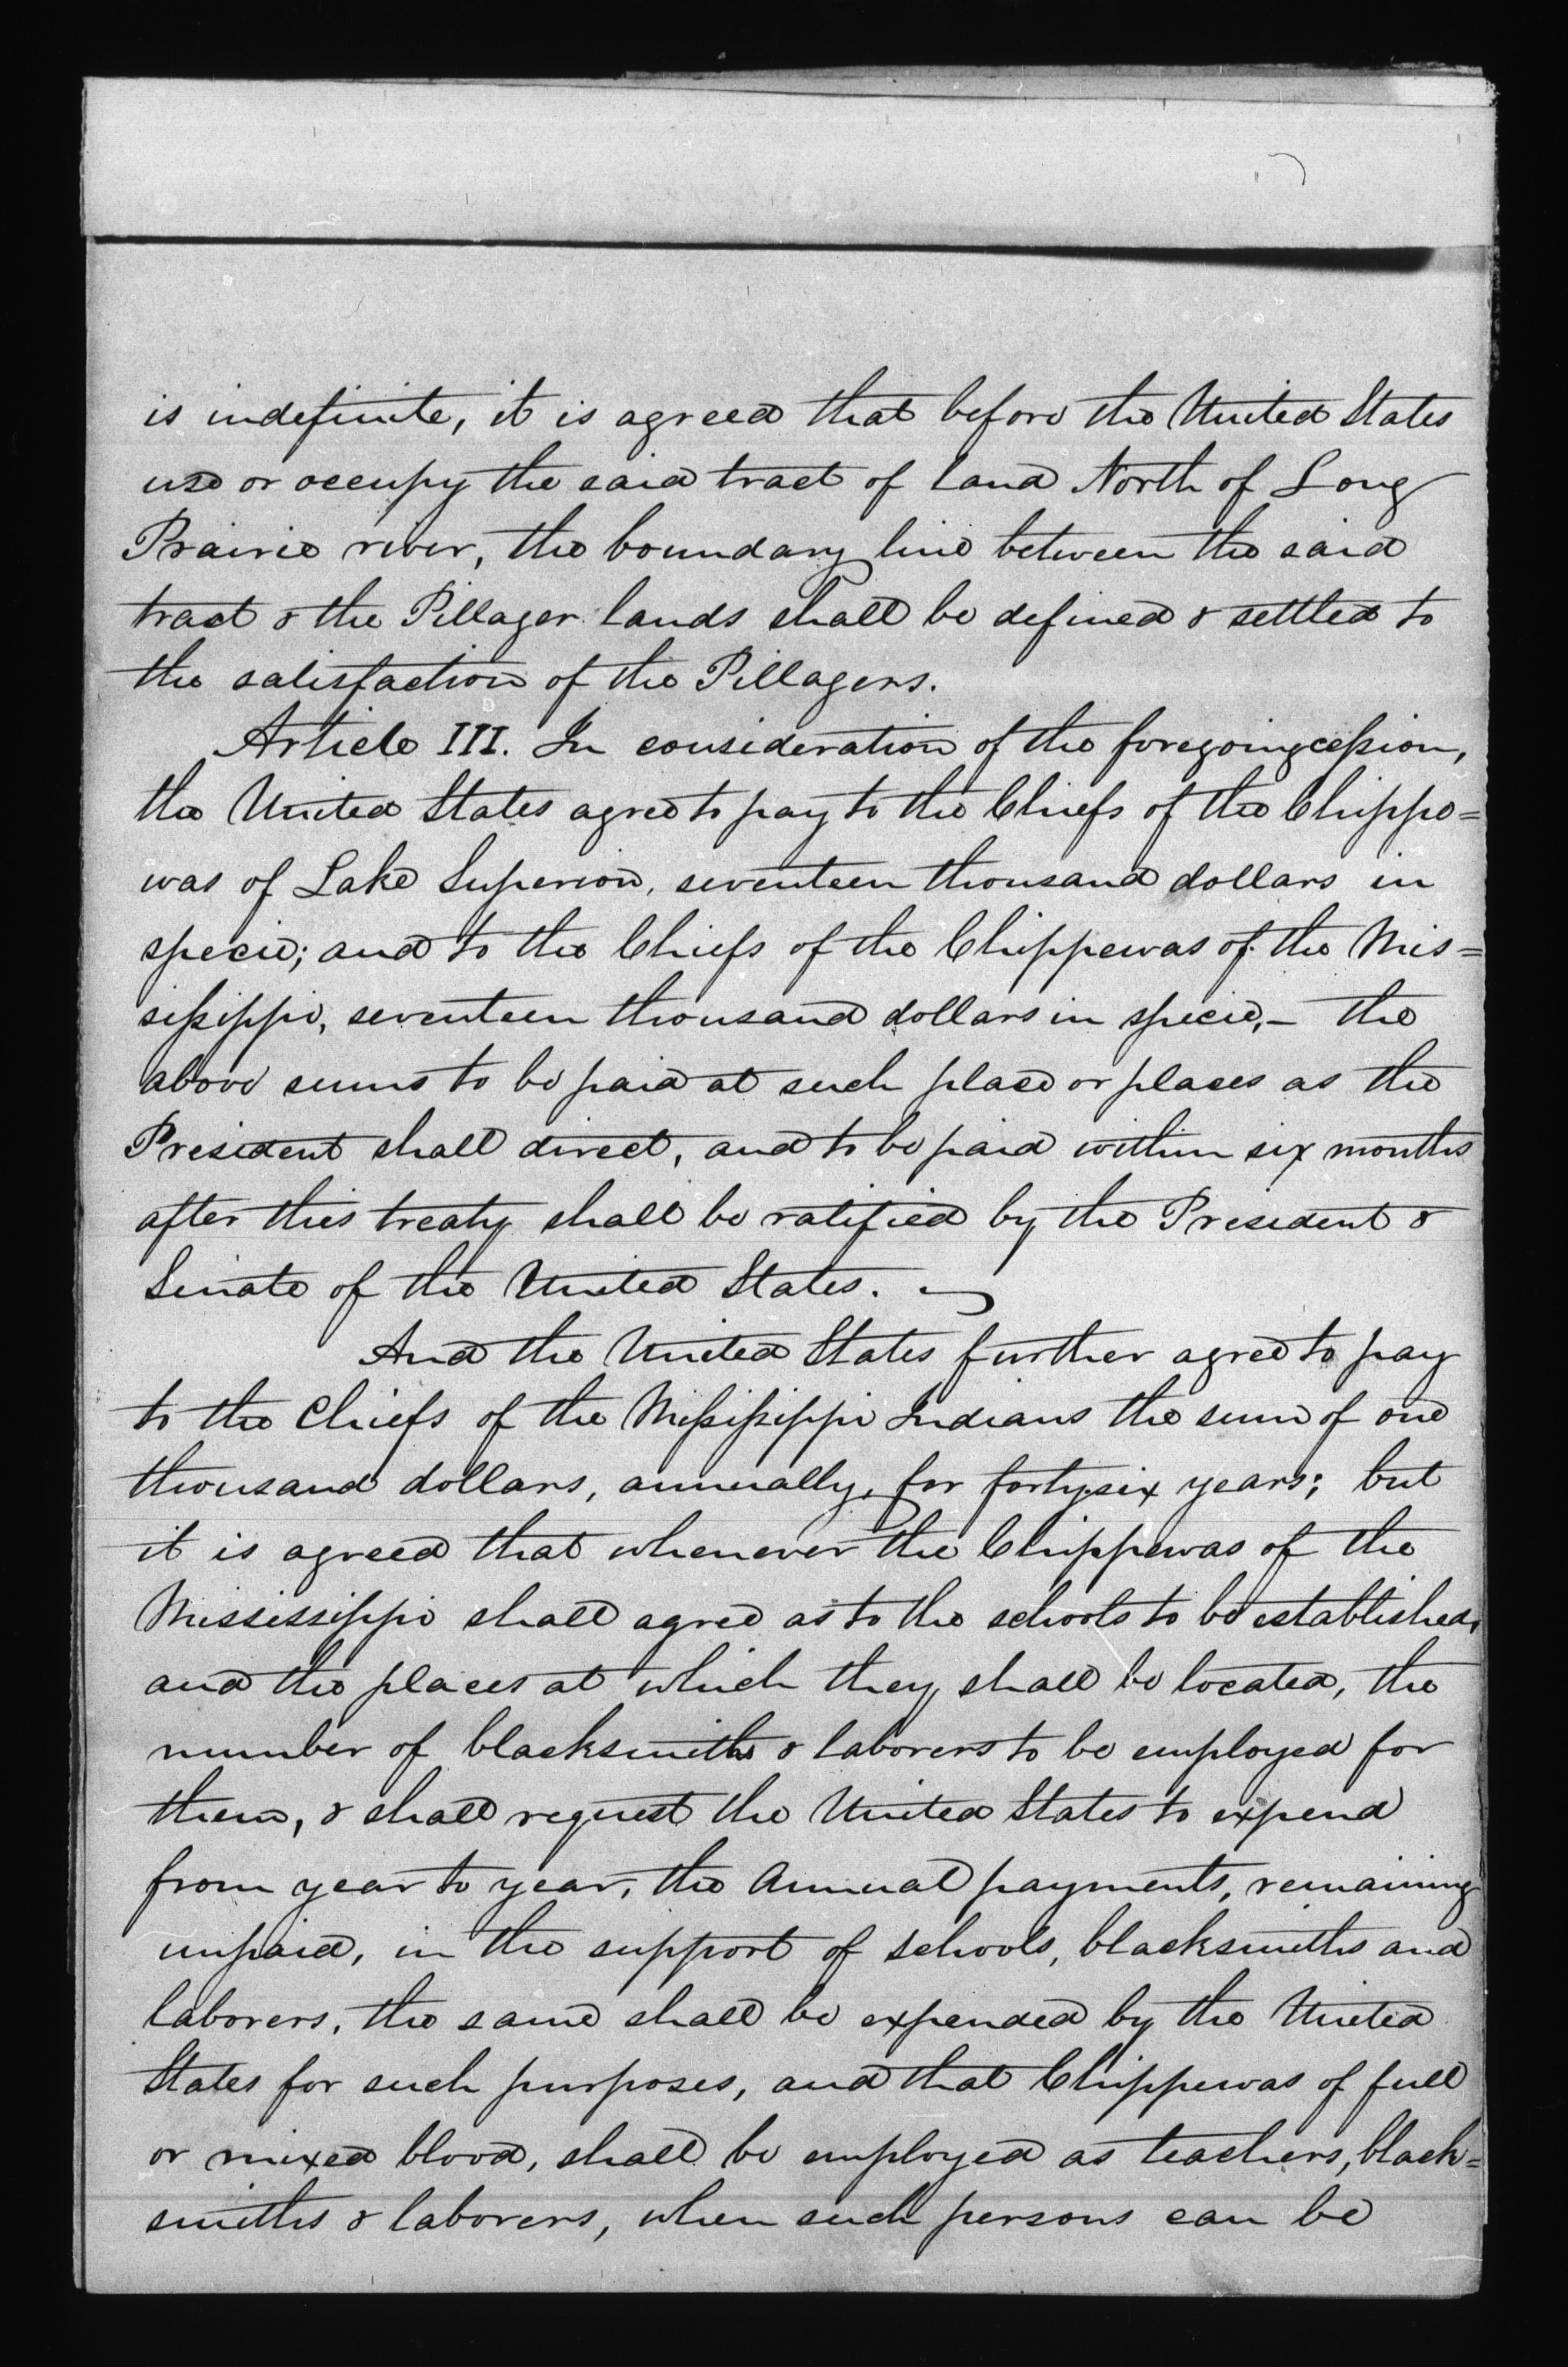 is indefinite, it is agreed that before the United States
use or occupy the said tract of land North of Long
Prairie river, the boundary line between the said
tract & the Pillager lands shall be defined & settled to
the satisfaction of the Pillagers.
Article III. In consideration of the foregoing cession,
the United States agree to pay to the Chiefs of the Chippe=
was of Lake Superior, seventeen thousand dollars in
specie; and to the Chiefs of the Chippewas of the Mis=
sissippi, seventeen thousand dollars in specie,— the
above sums to be paid at such place or places as the
President shall direct, and to be paid within six months
after this treaty shall be ratified by the President &
Senate of the United States.
And the United States further agree to pay
to the Chiefs of the Mississippi Indians the sum of one
thousand dollars, annually, for forty-six years; but
it is agreed that whenever the Chippewas of the
Mississippi shall agree as to the schools to be established,
and the places at which they shall be located, the
number of blacksmiths & laborers to be employed for
them, & shall request the United States to expend
from year to year, the Annual payments, remaining
unpaid, in the support of schools, blacksmiths and
laborers, the same shall be expended by the United
States for such purposes, and that Chippewas of full
or mixed blood, shall be employed as teachers, black=
smiths & laborers, when such persons can be